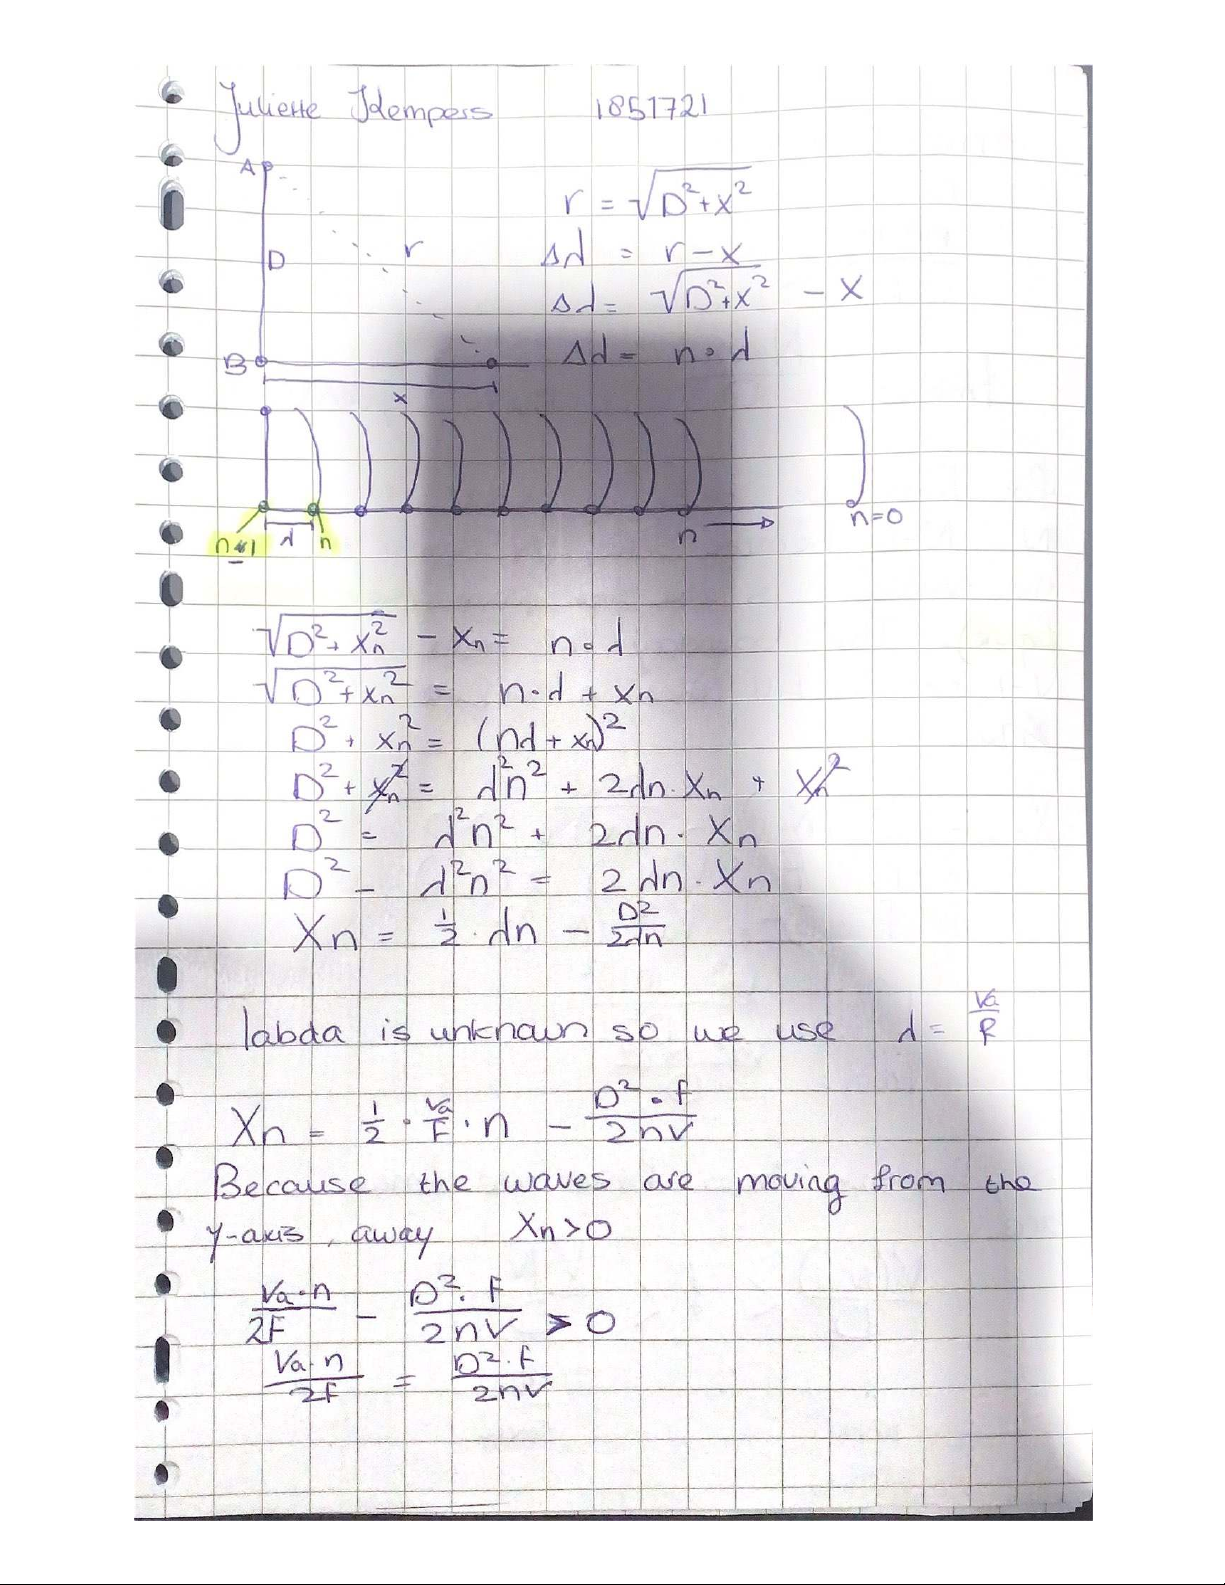 Juliette Kempers 1851721
A
D
r
B
x
r = √(D²+x²)
Δd = r − x
Δd = √(D²+x²) − x
Δd = n·λ
n=0
n
λ n
√(D²+xn²) − xn = n·λ
√(D²+xn²) = n·λ + xn
D² + xn² = (nλ + xn)²
D² + xn² = λ²n² + 2λn·xn + xn²
D² = λ²n² + 2λn·xn
D² − λ²n² = 2λn·xn
xn = ½·λn − D²/2λn
labda is unknown so we use λ = Va/f
xn = ½·Va/f·n − D²·f/2nV
Because the waves are moving from the
y-axis, away xn>0
Va·n/2f − D²·f/2nV > 0
Va·n/2f = D²·f/2nV